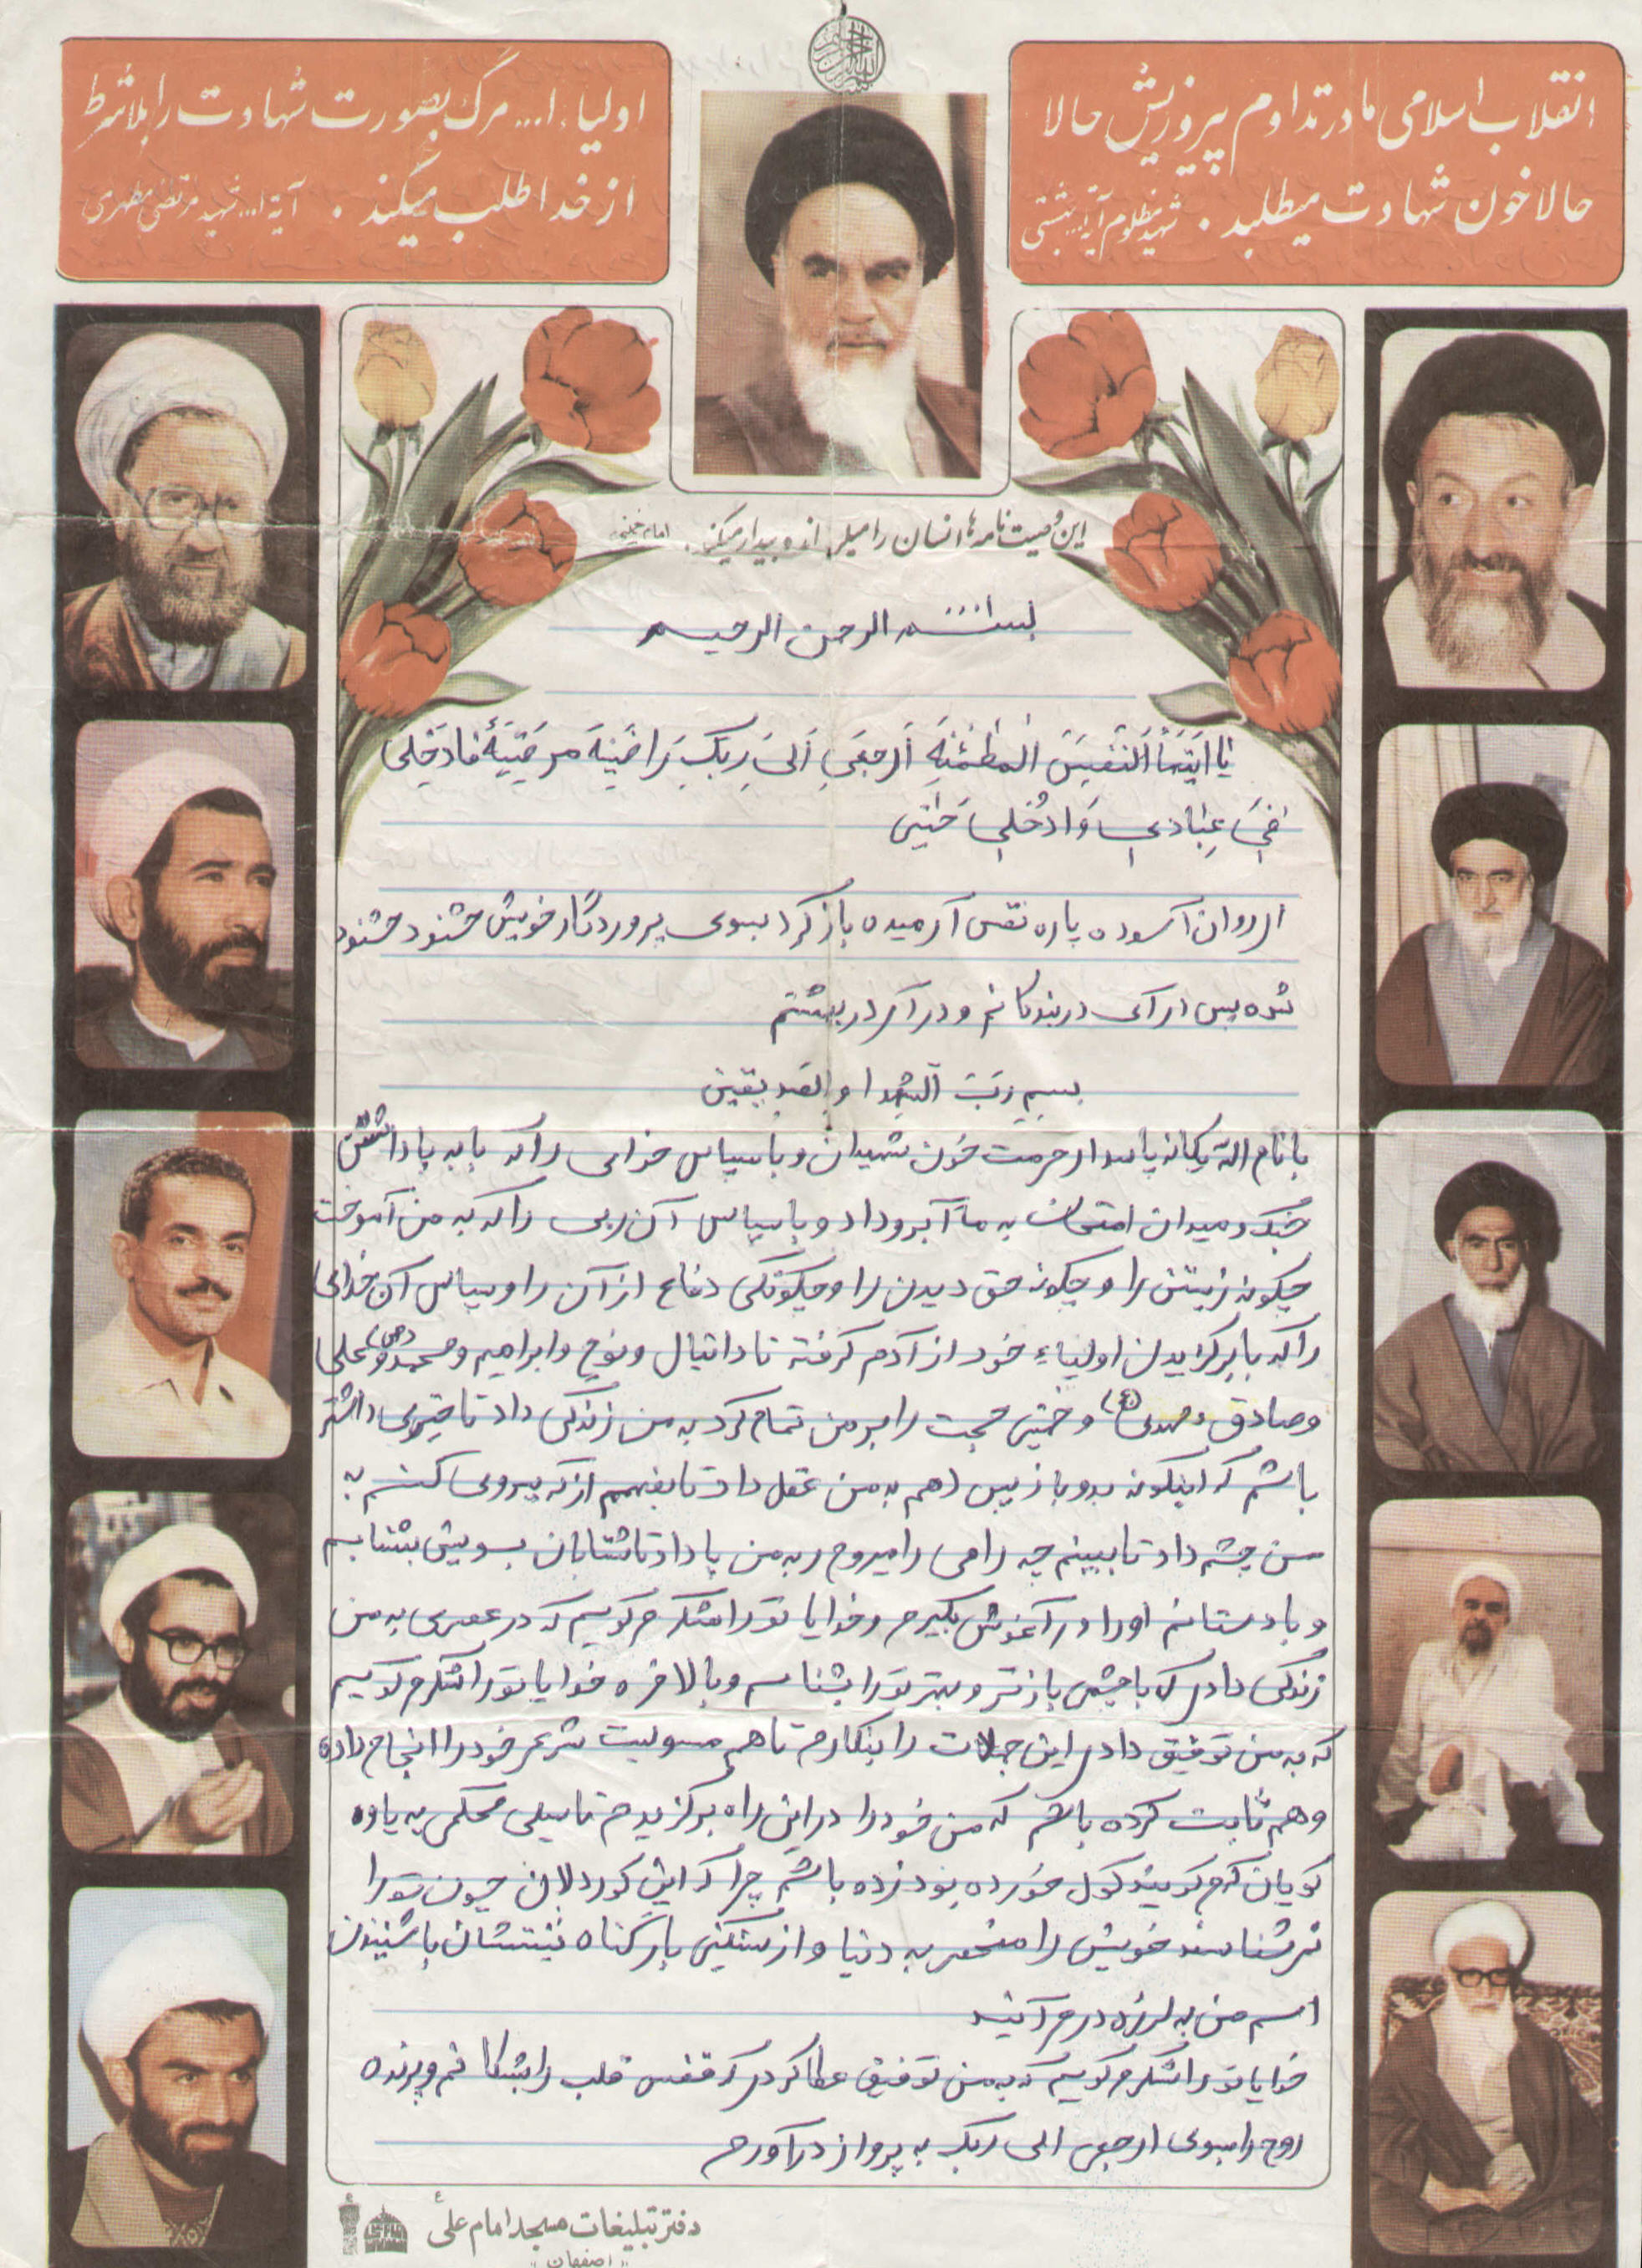 انقلاب اسلامی ما در تداوم پیروزیش حالا
حالا خون شهادت میطلبد . شهید مظلوم آیة... بهشتی
اولیاء ا... مرگ بصورت شهادت را بلاشرط
از خدا طلب میکند . آیة ا... شهید مرتضی مطهری
این وصیت نامه ها انسان را میلرزاند و بیدار میکند . امام خمینی
بسم الله الرحمن الرحیم
یا ایتها النفس المطمئنه ارجعی الی ربک راضیة مرضیة فادخلی
فی عبادی وادخلی جنتی
ای روان آسوده یاره نفس آرمیده باز گرد بسوی پروردگار خویش خشنود خشنود
شده پس در آی در بندگانم و در آی در بهشتم
بسم رب الشهدا و الصدیقین
با نام الله یگانه پاسدار حرمت خون شهیدان و با سپاس خدایی را که با به پا داشتن
جنگ و میدان امتحان به ما آبرو داد و با سپاس آن ربی را که به من آموخت
چگونه زیستن را و چگونه حق دیدن را و چگونگی دفاع از آن را و سپاس آن خدایی
را که با برگزیدن اولیاء خود از آدم گرفته تا دانیال و نوح و ابراهیم و محمد (ص) و علی
و صادق و مهدی (عج) و خمینی حجت را بر من تمام کرد به من زندگی داد تا داشته
باشم که اینگونه بدو باز پس دهم به من عقل داد تا بفهمم از که پیروی کنم به
من چشم داد تا ببینم چه راهی را میروم و به من پا داد تا شتابان بسویش بشتابم
و با دستانم او را در آغوش بگیرم و خدایا تو را شکر میگویم که در عصری به من
زندگی دادی که با چشمی بازتر و بهتر تو را بشناسم و بالاخره خدایا تو را شکر میگویم
که به من توفیق دادی این جملات را بنگارم تا هم مسولیت شرعی خود را انجام داده
و هم ثابت کرده باشم که من خود را در این راه برگزیدم تا سیلی محکمی به یاوه
گویان که میگویند گول خورده بود زده باشم چرا که این کوردلان چون تو را
نمیشناسند خویش را منحصر به دنیا و از سنگینی بار گناه نیتشان با شنیدن
اسم من به لرزه در می آیند
خدایا تو را شکر میگویم که به من توفیق عطا کردی که قفس قلب را بشکافم و پرنده
روح را بسوی ارجعی الی ربک به پرواز درآورم
دفتر تبلیغات مسجد امام علی ع
"اصفهان"